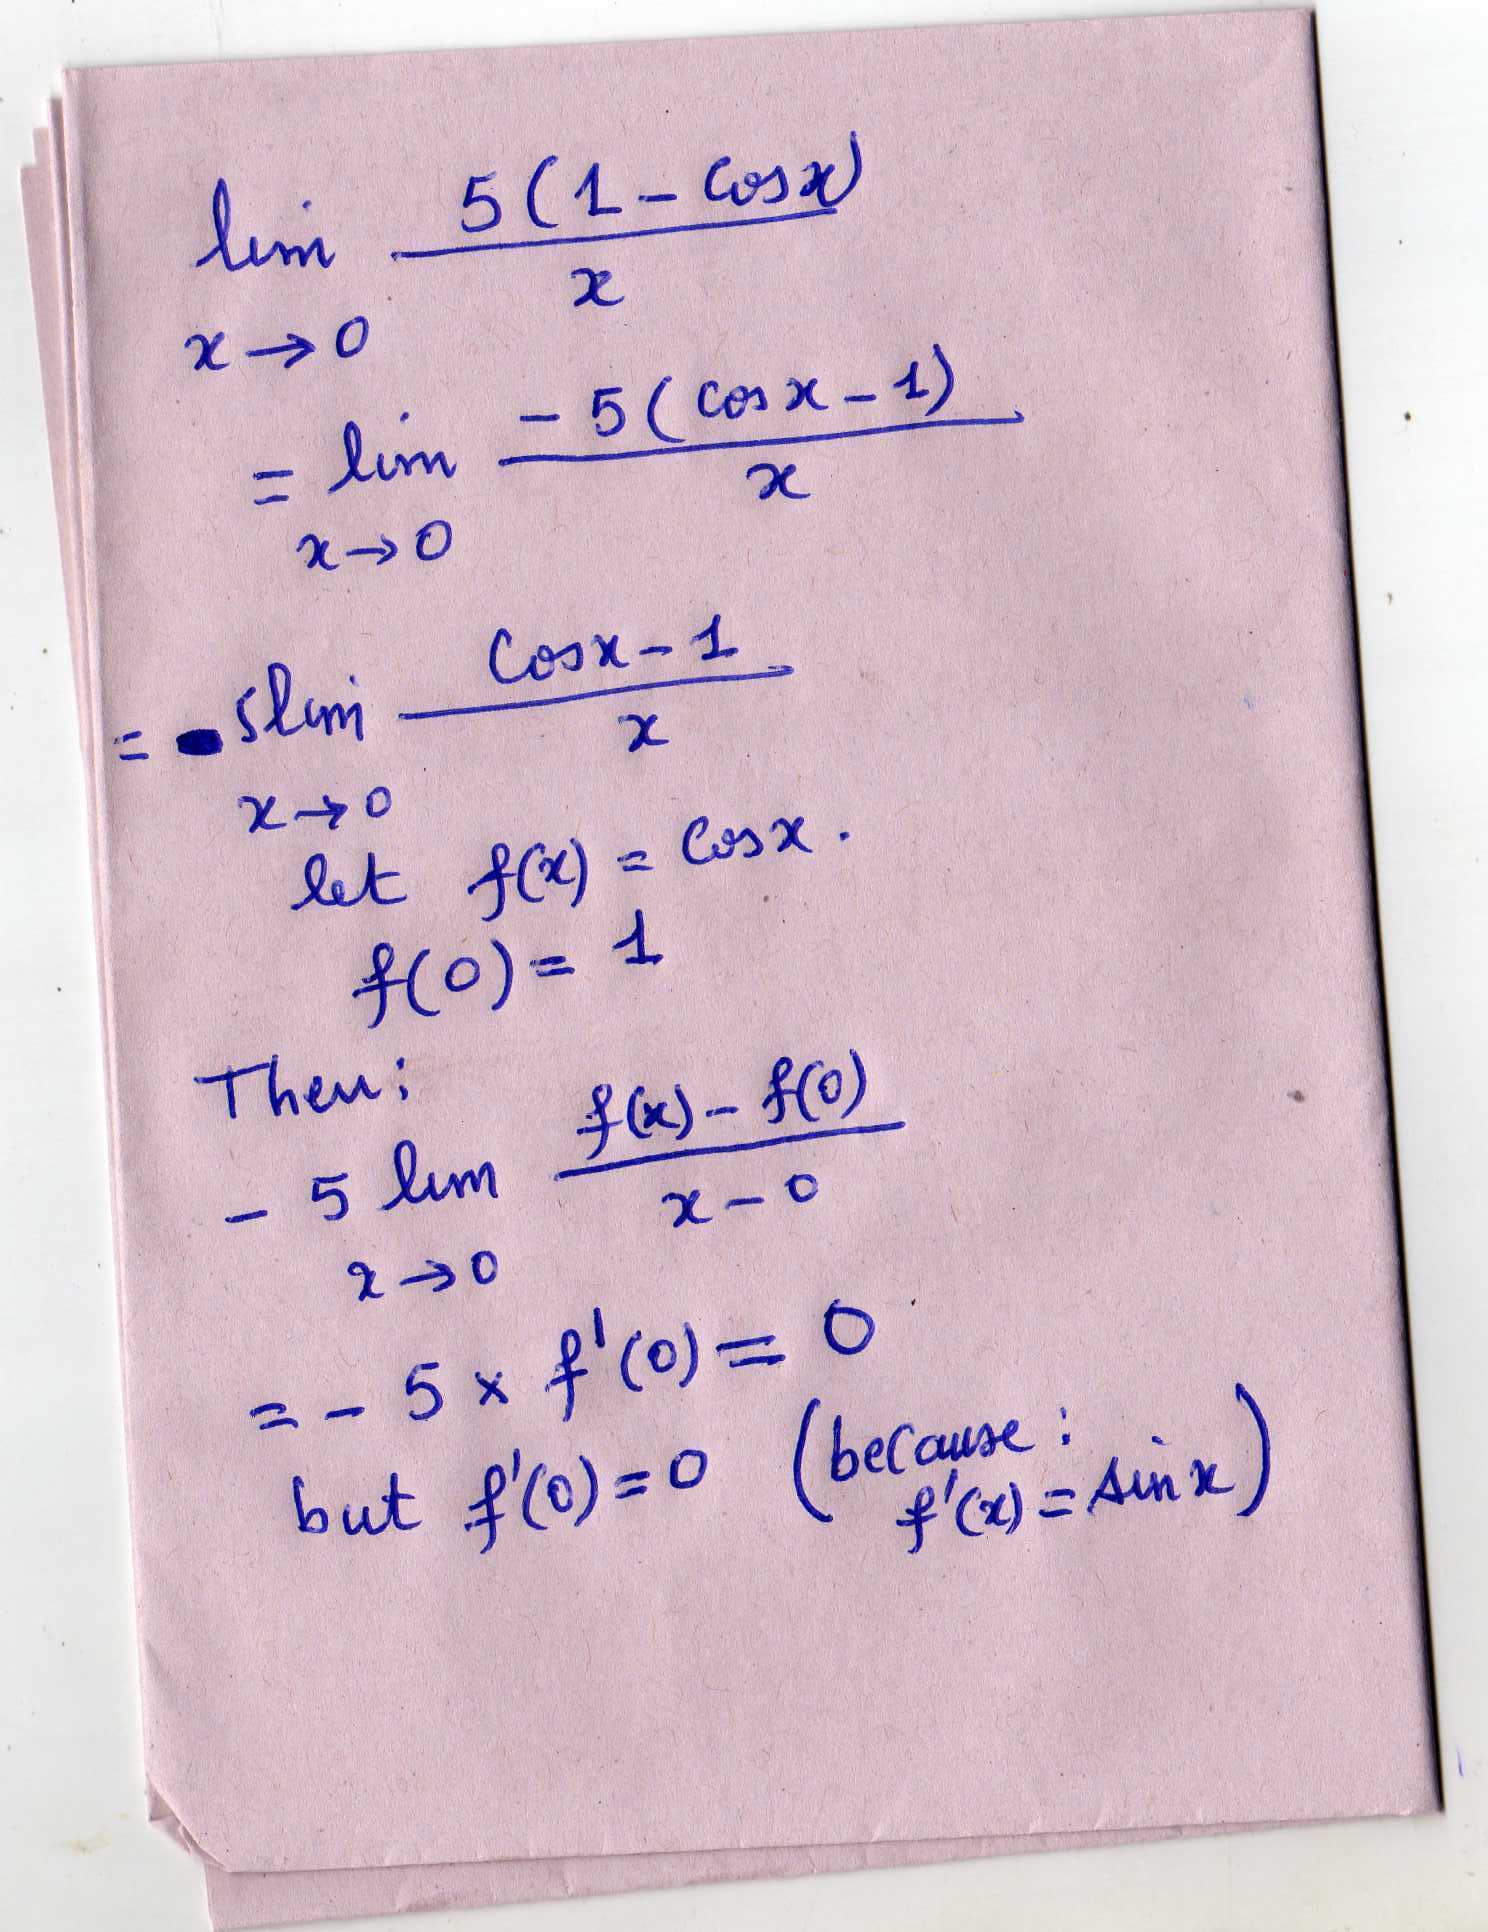 lim 5(1 - cosx) / x
x → 0
= lim - 5(cosx - 1) / x
x → 0
= 5lim cosx - 1 / x
x → 0
let f(x) = cosx.
f(0) = 1
Then:
- 5 lim f(x) - f(0) / x - 0
x → 0
= - 5 x f'(0) = 0
but f'(0) = 0 (because:
f'(x) = sinx)